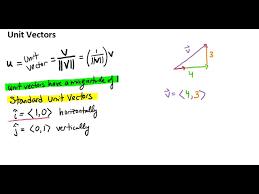 Unit Vectors
u = unit vector = v / ||v|| = (1 / ||v||) v
unit vectors have a magnitude of 1
Standard Unit Vectors
î = ⟨1,0⟩ horizontally
ĵ = ⟨0,1⟩ vertically
v⃗
3
4
v⃗ = ⟨4,3⟩